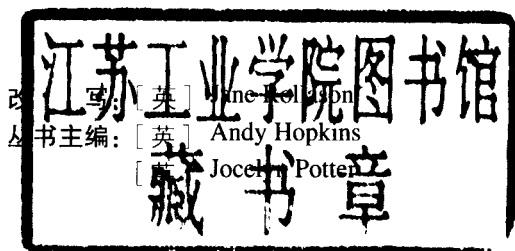 江苏工业学院图书馆
藏书章
改 写：[英] Jane Rollason
丛书主编：[英] Andy Hopkins
[英] Jocelyn Potter